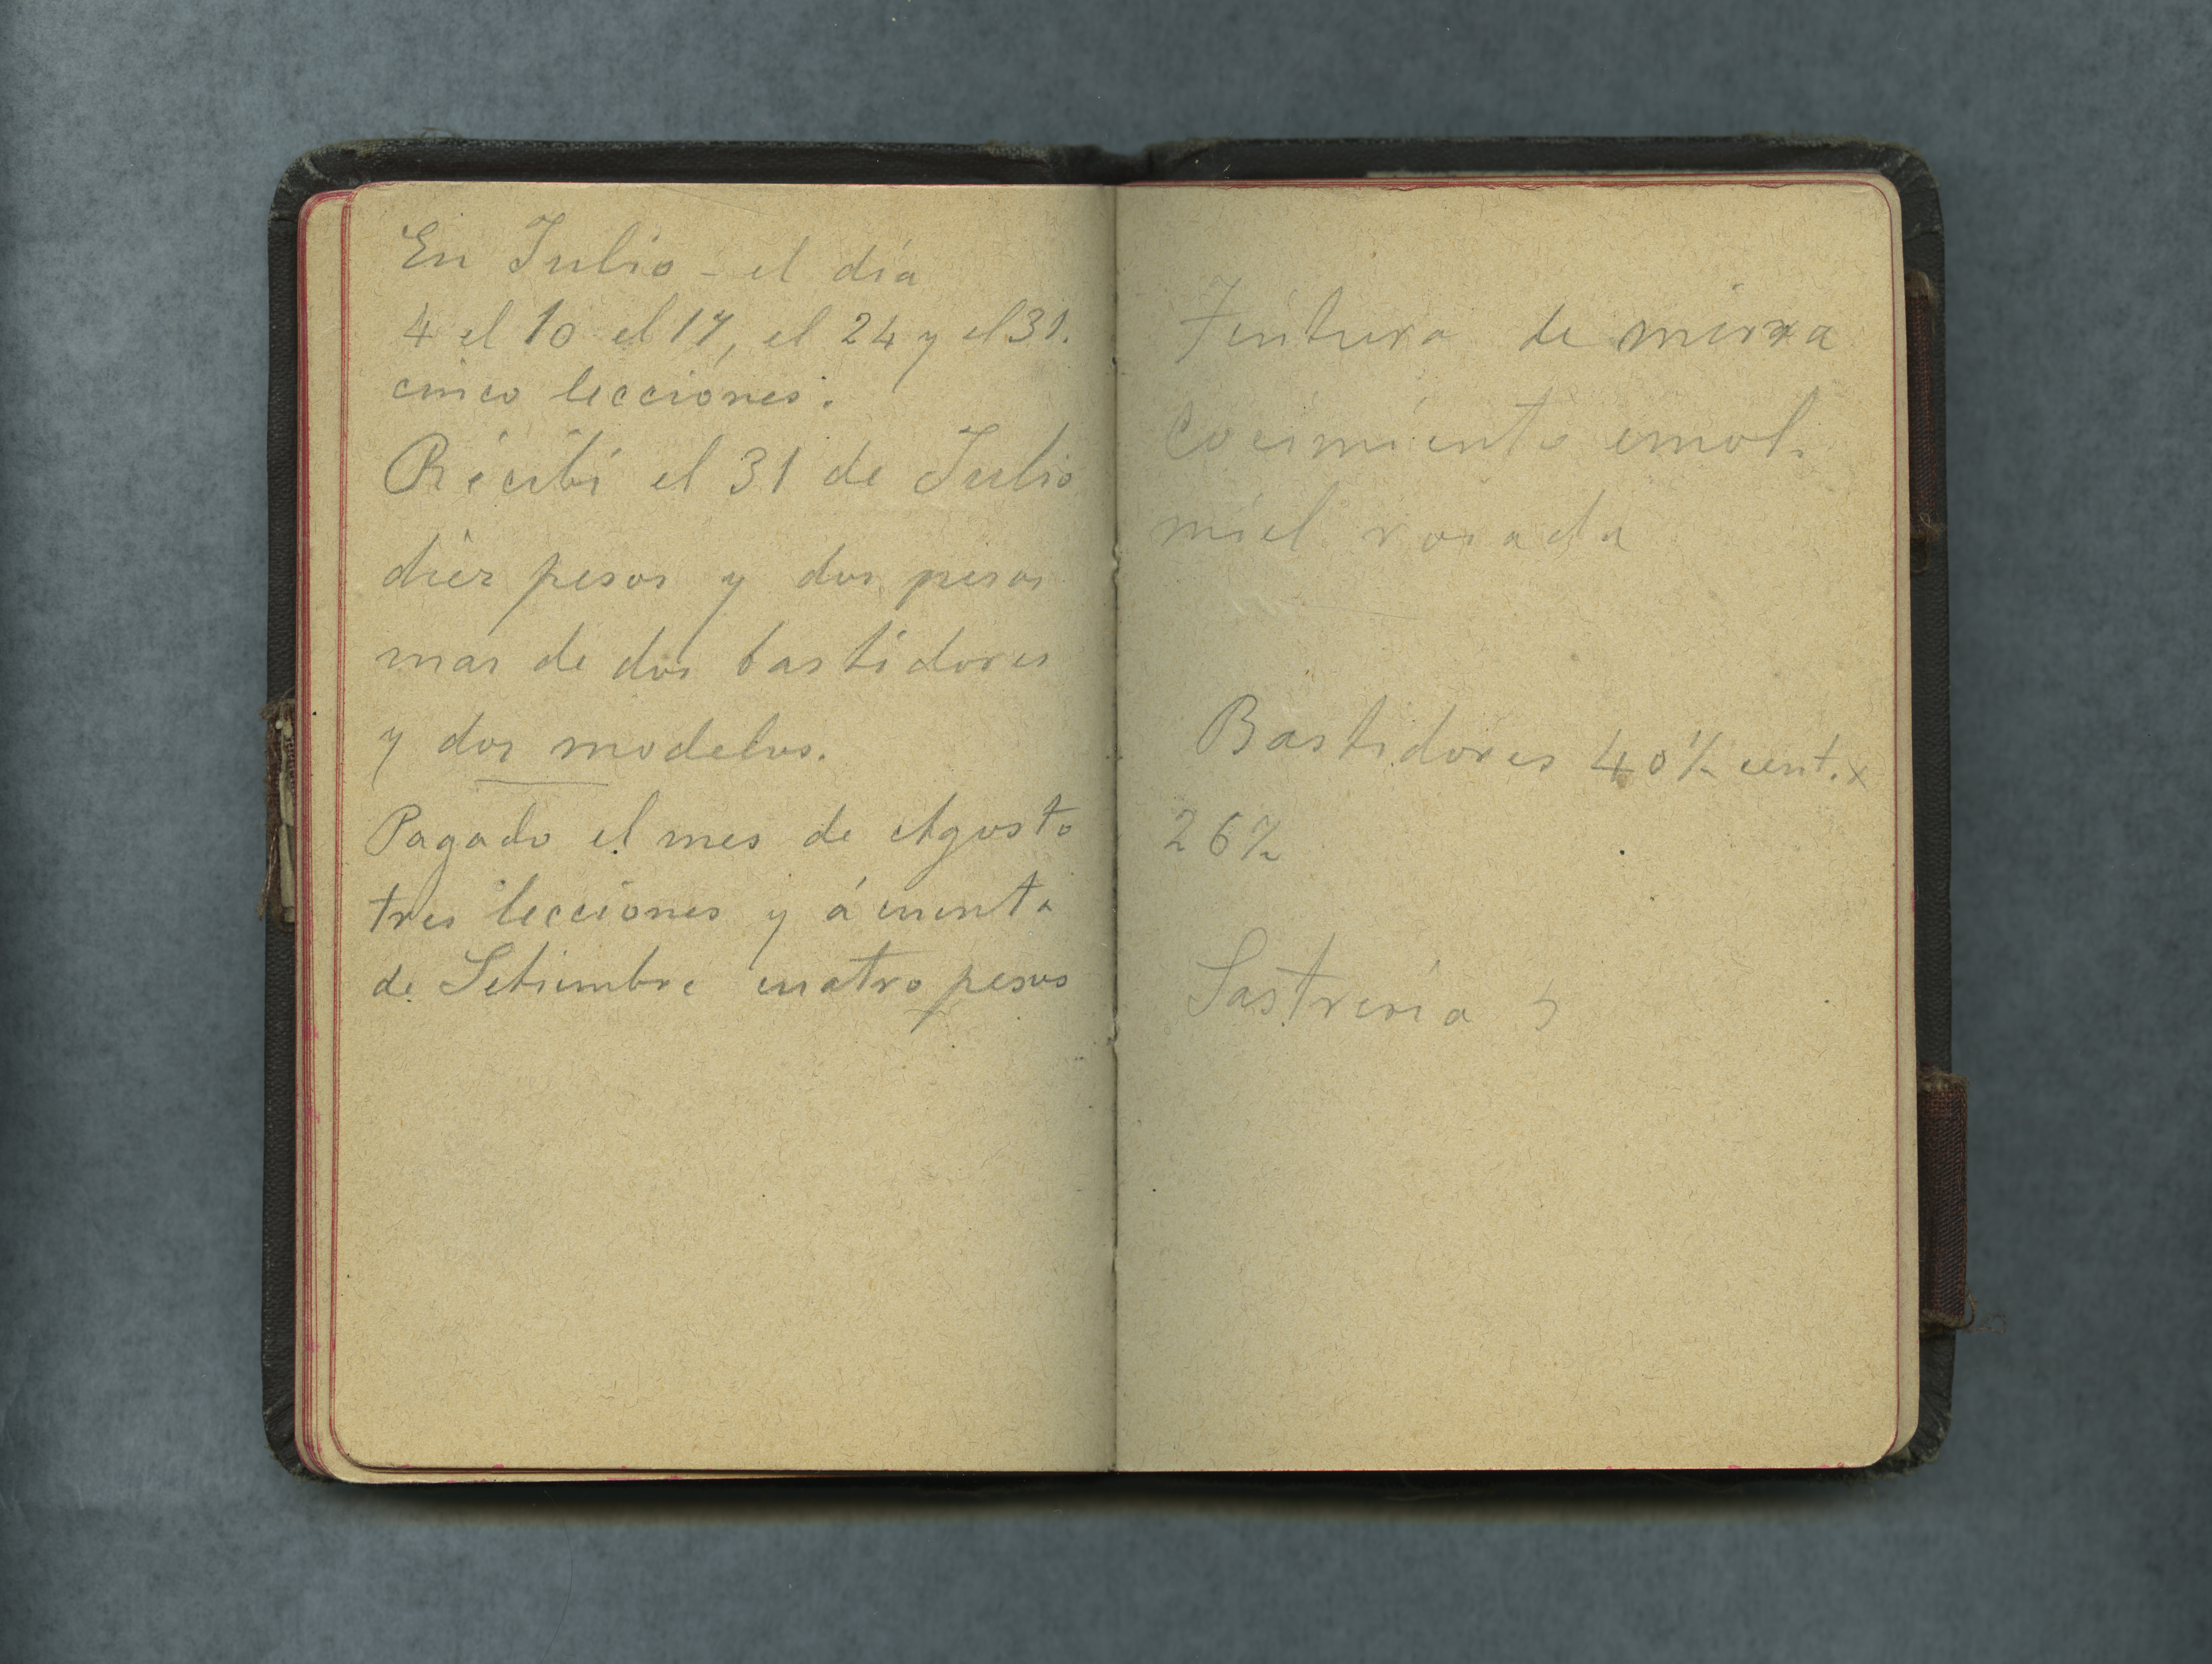 En Julio - el día
4 el 10 el 17, el 24 y el 31.
cinco lecciones.
Recibi el 31 de Julio
diez pesos y dos pesos
mas de dos bastidores
y dos modelos.
Pagado el mes de Agosto
tres lecciones y á cuenta
de Setiembre cuatro pesos
Tintura de mirra
Cocimiento emol.
miel rosada
Bastidores 40½ cent. x
26½
Sastreria 5